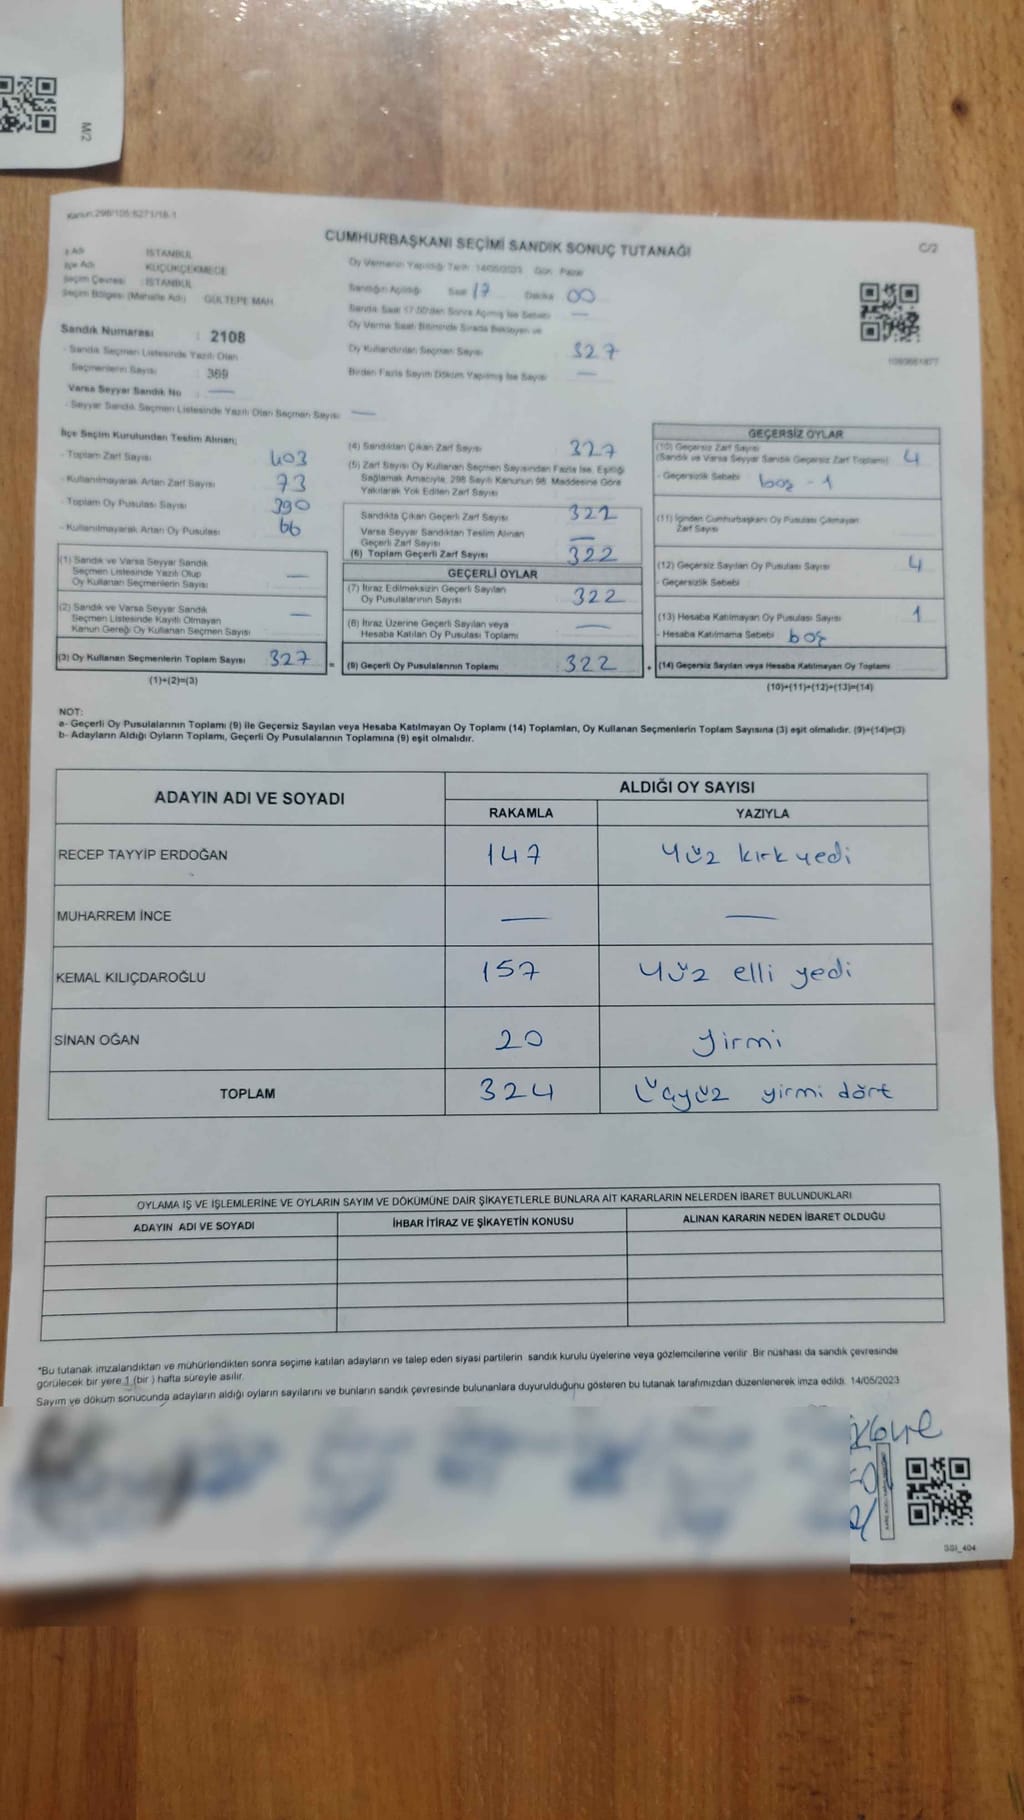 M/2
Kanun:298/105;6271/18-1
CUMHURBAŞKANI SEÇİMİ SANDIK SONUÇ TUTANAĞI
C/2
İl Adı İSTANBUL
İlçe Adı KÜÇÜKÇEKMECE
Seçim Çevresi : İSTANBUL
Seçim Bölgesi (Mahalle Adı) GÜLTEPE MAH.
Oy Vermenin Yapıldığı Tarih: 14/05/2023 Gün: Pazar
Sandığın Açıldığı Saat 17 Dakika 00
Sandık Saat 17:00'den Sonra Açılmış İse Sebebi —
Oy Verme Saati Bitiminde Sırada Bekleyen ve
Oy Kullandırılan Seçmen Sayısı 327
Birden Fazla Sayım Döküm Yapılmış İse Sayısı —
Sandık Numarası : 2108
- Sandık Seçmen Listesinde Yazılı Olan
Seçmenlerin Sayısı : 369
Varsa Seyyar Sandık No : —
- Seyyar Sandık Seçmen Listesinde Yazılı Olan Seçmen Sayısı —
İlçe Seçim Kurulundan Teslim Alınan;
- Toplam Zarf Sayısı 403
- Kullanılmayarak Artan Zarf Sayısı 73
- Toplam Oy Pusulası Sayısı 390
- Kullanılmayarak Artan Oy Pusulası 66
(1) Sandık ve Varsa Seyyar Sandık
Seçmen Listesinde Yazılı Olup
Oy Kullanan Seçmenlerin Sayısı —
(2) Sandık ve Varsa Seyyar Sandık
Seçmen Listesinde Kayıtlı Olmayan
Kanun Gereği Oy Kullanan Seçmen Sayısı —
(3) Oy Kullanan Seçmenlerin Toplam Sayısı 327 =
(1)+(2)=(3)
(4) Sandıktan Çıkan Zarf Sayısı 327
(5) Zarf Sayısı Oy Kullanan Seçmen Sayısından Fazla İse, Eşitliği
Sağlamak Amacıyla, 298 Sayılı Kanunun 98. Maddesine Göre
Yakılarak Yok Edilen Zarf Sayısı
Sandıkta Çıkan Geçerli Zarf Sayısı 322
Varsa Seyyar Sandıktan Teslim Alınan
Geçerli Zarf Sayısı —
(6) Toplam Geçerli Zarf Sayısı 322
GEÇERLİ OYLAR
(7) İtiraz Edilmeksizin Geçerli Sayılan
Oy Pusulalarının Sayısı 322
(8) İtiraz Üzerine Geçerli Sayılan veya
Hesaba Katılan Oy Pusulası Toplamı —
(9) Geçerli Oy Pusulalarının Toplamı 322 +
GEÇERSİZ OYLAR
(10) Geçersiz Zarf Sayısı
(Sandık ve Varsa Seyyar Sandık Geçersiz Zarf Toplamı) 4
- Geçersizlik Sebebi boş - 1
(11) İçinden Cumhurbaşkanı Oy Pusulası Çıkmayan
Zarf Sayısı
(12) Geçersiz Sayılan Oy Pusulası Sayısı 4
- Geçersizlik Sebebi
(13) Hesaba Katılmayan Oy Pusulası Sayısı 1
- Hesaba Katılmama Sebebi boş
(14) Geçersiz Sayılan veya Hesaba Katılmayan Oy Toplamı
(10)+(11)+(12)+(13)=(14)
NOT:
a- Geçerli Oy Pusulalarının Toplamı (9) ile Geçersiz Sayılan veya Hesaba Katılmayan Oy Toplamı (14) Toplamları, Oy Kullanan Seçmenlerin Toplam Sayısına (3) eşit olmalıdır. (9)+(14)=(3)
b- Adayların Aldığı Oyların Toplamı, Geçerli Oy Pusulalarının Toplamına (9) eşit olmalıdır.
ADAYIN ADI VE SOYADI ALDIĞI OY SAYISI
RAKAMLA YAZIYLA
RECEP TAYYİP ERDOĞAN 147 Yüz kırk yedi
MUHARREM İNCE — —
KEMAL KILIÇDAROĞLU 157 Yüz elli yedi
SİNAN OĞAN 20 Yirmi
TOPLAM 324 Üçyüz yirmi dört
OYLAMA İŞ VE İŞLEMLERİNE VE OYLARIN SAYIM VE DÖKÜMÜNE DAİR ŞİKAYETLERLE BUNLARA AİT KARARLARIN NELERDEN İBARET BULUNDUKLARI
ADAYIN ADI VE SOYADI İHBAR İTİRAZ VE ŞİKAYETİN KONUSU ALINAN KARARIN NEDEN İBARET OLDUĞU
*Bu tutanak imzalandıktan ve mühürlendikten sonra seçime katılan adayların ve talep eden siyasi partilerin sandık kurulu üyelerine veya gözlemcilerine verilir. Bir nüshası da sandık çevresinde
görülecek bir yere 1 (bir ) hafta süreyle asılır.
Sayım ve döküm sonucunda adayların aldığı oyların sayılarını ve bunların sandık çevresinde bulunanlara duyurulduğunu gösteren bu tutanak tarafımızdan düzenlenerek imza edildi. 14/05/2023
SSI_404